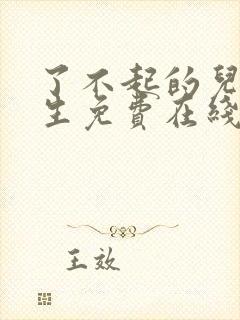 了不起的兒
生免費在綫
王效